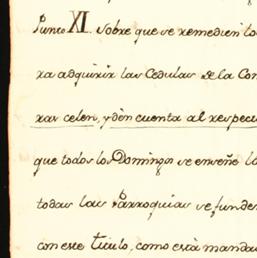 Punto XI. Sobre que se remedien to
ra adquirir las Cedulas de la Con
xas celen, y dèn cuenta al respecti
que todos los Domingos se enseñe la
todas las Parroquias se funden
con este titulo, como està manda